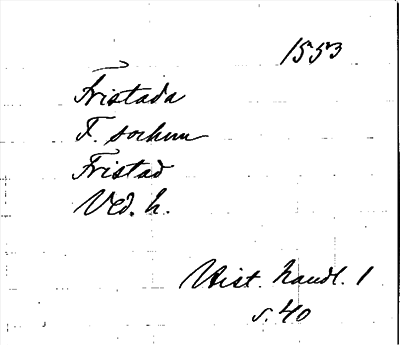 1553
Fristada
F. sochnn
Fristad
Ved. h.
Hist. handl. 1
s. 40